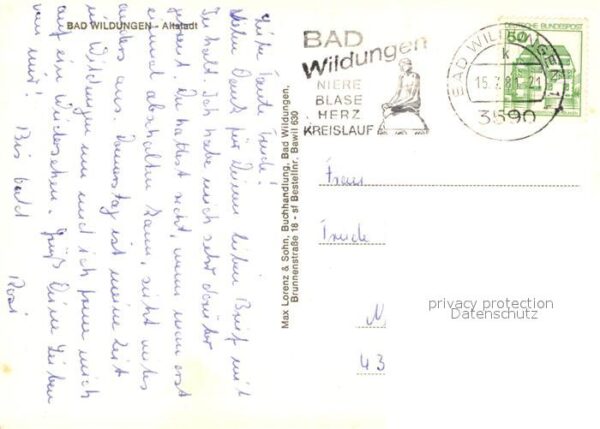 BAD WILDUNGEN - Altstadt
Liebe Tante Trude!
Vielen Dank für Deinen lieben Brief mit
Inhalt. Ich habe mich sehr darüber
gefreut. Du hattest recht, wenn man erst
einmal abschalten kann, sieht alles
anders aus. Donnerstag ist meine Zeit
in Wildungen um und ich freue mich
auf ein Wiedersehen. Grüß Deine Lieben
von mir!
Bis bald
Rosi
Max Lorenz & Sohn, Buchhandlung, Bad Wildungen,
Brunnenstraße 18 - sf Bestellnr. Bawil 630
BAD
Wildungen
NIERE
BLASE
HERZ
KREISLAUF
BAD WILDUNGEN 1
k
15.7.81-21
3590
DEUTSCHE BUNDESPOST
50
Frau
Trude
N
43
privacy protection
Datenschutz